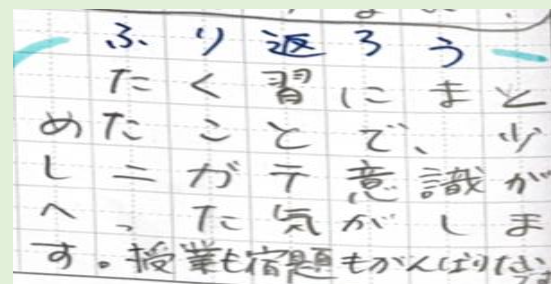 ふり返ろう
たく習にまと
めたことで、少
しニガテ意識が
へった気がしま
す。授業も宿題もがんばりたい